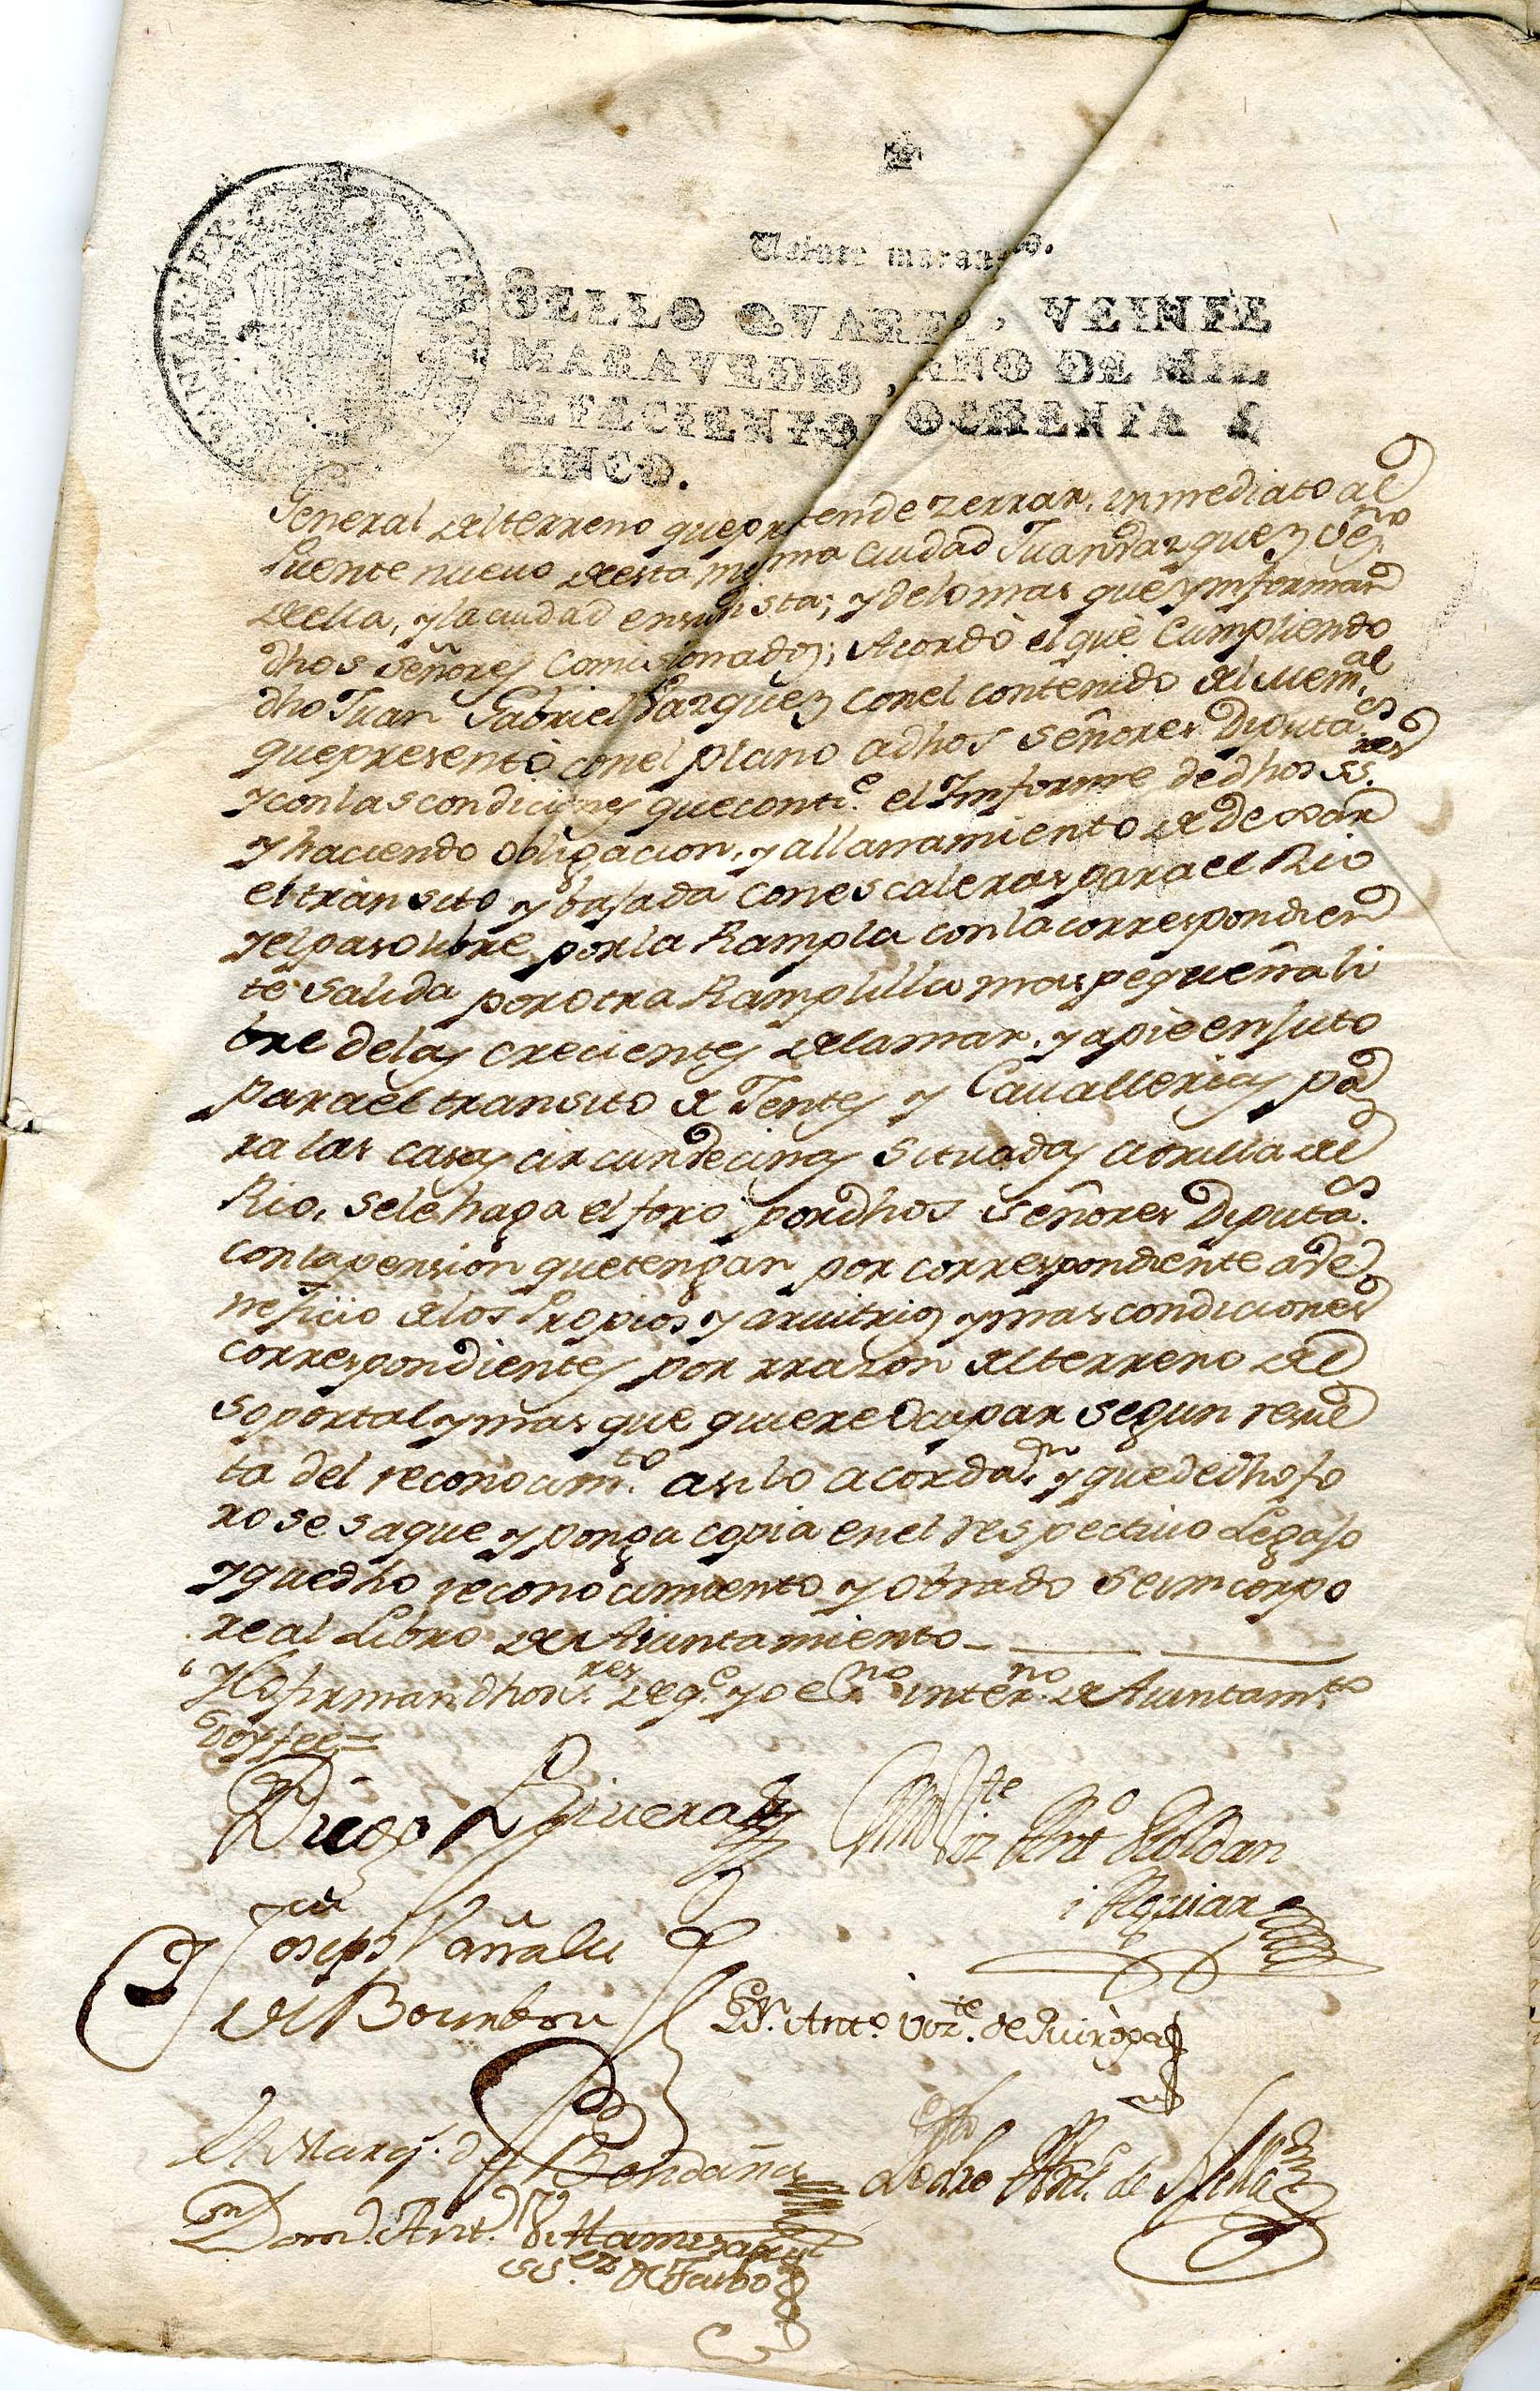 Veinte maravedis.
SELLO QVARTO, VEINTE
MARAVEDIS, AÑO DE MIL
SETECIENTOS OCHENTA Y
CINCO.
General del terreno que pretende zerrar, inmediato al
Puente nuevo de esta misma Ciudad Juan Vazquez Vezno
de ella, y la ciudad en su vista; y de lo mas que ynforman
dhos Señores Comisionados; Acordò el què Cumpliendo
dho Juan Gabriel Vazquez con el contenido del mem.al
que presentò con el plano a dhos Señores Diputa.os
y con las condiciones que conti.e el Informe de dhos SS.res
y haciendo obligacion, y allanamiento de dexar
el transito y bajada con escaleras para el Rio
y el paso libre por la Rampla con la correspondien
te salida por otra Ramplilla mas pequeña li
bre de las crecientes de la mar, y a pie enjuto
para el transito de Gentes y Cauallerias pa
ra las casas circunvecinas situadas a orilla del
Rio, se le haga el foro por dhos Señores Diputa.os
con la pension que tengan por correspondiente a be
neficio de los Propios y arvitrios y mas condiciones
correspondientes por rrazon del terreno del
soportal y mas que quiere Ocupar segun resul
ta del reconocim.to asi lo acordar.on y que de dho fo
ro se saque y ponga copia en el respectivo Legajo
y que dho reconocimiento y obrado se incorpo
re al Libro de Aiuntamiento
Y lo firman dhos S.res de q.e yo es.no inter.no de Aiuntam.to
doy fee=
Diego Rivera
Viz.te Ant.o Roldan
i Aguiar
Joseph Cañalu
de Bourbon
D.n Ant.o Viz.te de Quiroga
El Marq.s de Bendaña
Pedro Ant.o de
Dom.n Ant.o